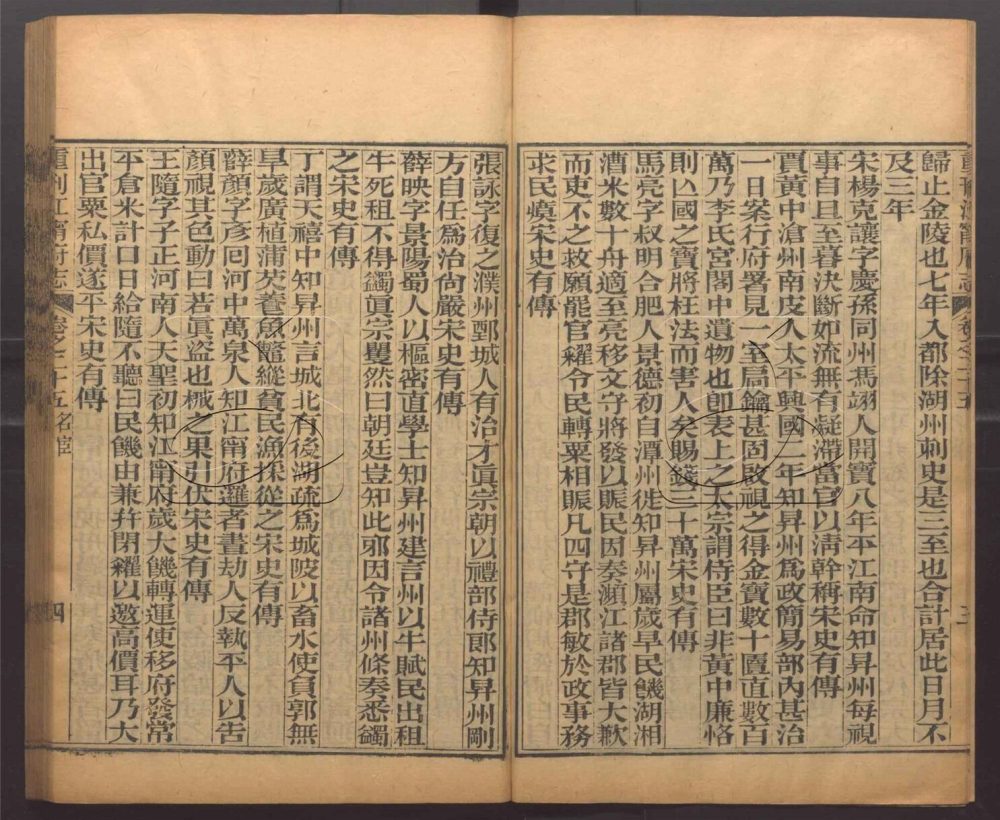 歸止金陵也七年入都除湖州刺史是三至也合計居此日月不
及三年
宋楊克讓字慶孫同州馮翊人開寶八年平江南命知昇州每視
事自旦至暮決斷如流無有凝滯當官以淸幹稱宋史有傳
賈黃中滄州南皮人太平興國二年知昇州爲政簡易部內甚治
一日案行府署見一室扃鑰甚固啟視之得金寶數十匱直數百
萬乃李氏宮閣中遺物也卽表上之太宗謂侍臣曰非黃中廉恪
則亾國之寶將枉法而害人矣賜錢三十萬宋史有傳
馬亮字叔明合肥人景德初自潭州徙知昇州屬歲旱民饑湖湘
漕米數十舟適至亮移文守將發以賑民因奏瀕江諸郡皆大歉
而吏不之救願罷官糴令民轉粟相賑凡四守是郡敏於政事務
求民瘼宋史有傳
張詠字復之濮州鄄城人有治才眞宗朝以禮部侍郞知昇州剛
方自任爲治尙嚴宋史有傳
薛映字景陽蜀人以樞密直學士知昇州建言州以牛賦民出租
牛死租不得蠲眞宗矍然曰朝廷豈知此邪因令諸州條奏悉蠲
之宋史有傳
丁謂天禧中知昇州言城北有後湖疏爲城陂以畜水使負郭無
旱歲廣植蒲芡養魚鼈縱貧民漁採從之宋史有傳
薛顏字彥囘河中萬泉人知江甯府邏者晝劫人反執平人以告
顏視其色動曰若眞盜也械之果引伏宋史有傳
王隨字子正河南人天聖初知江甯府歲大饑轉運使移府發常
平倉米計口日給隨不聽曰民饑由兼幷閉糴以邀高價耳乃大
出官粟私價遂平宋史有傳
重刊江甯府志
卷之二十五名宦
四